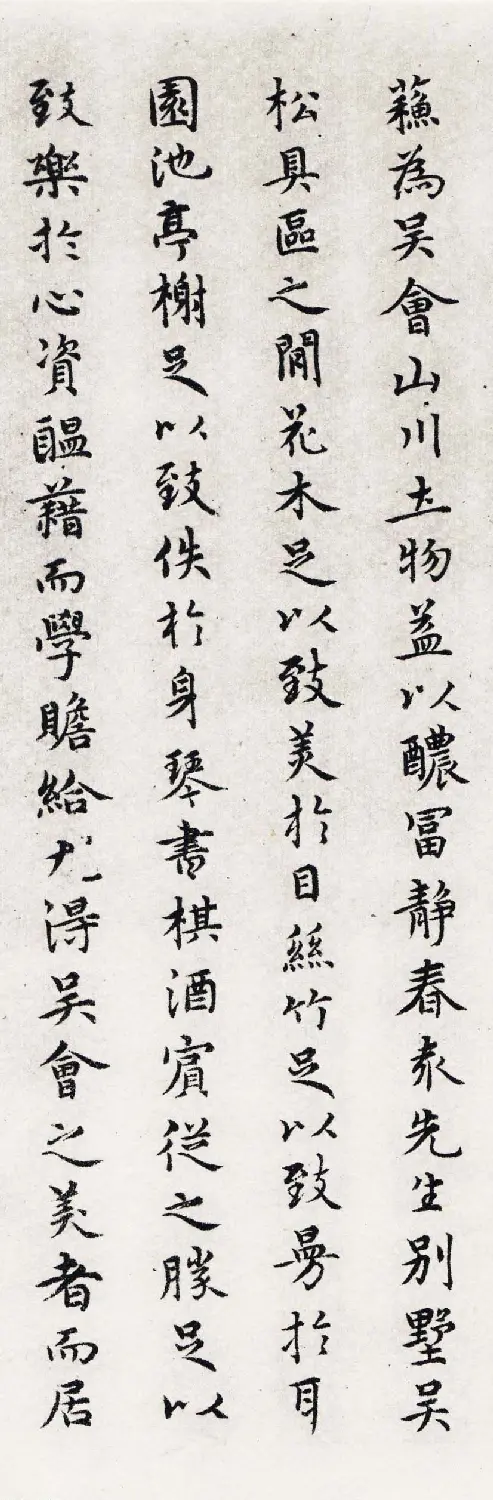 蘓為吳會山川土物益以醲冨靜春袁先生別墅吳
松具區之間花木足以致美於目絲竹足以致曼於耳
園池亭榭足以致佚於身琴書棋酒賔從之勝足以
致樂於心資醞藉而學贍給尤得吳會之美者而居